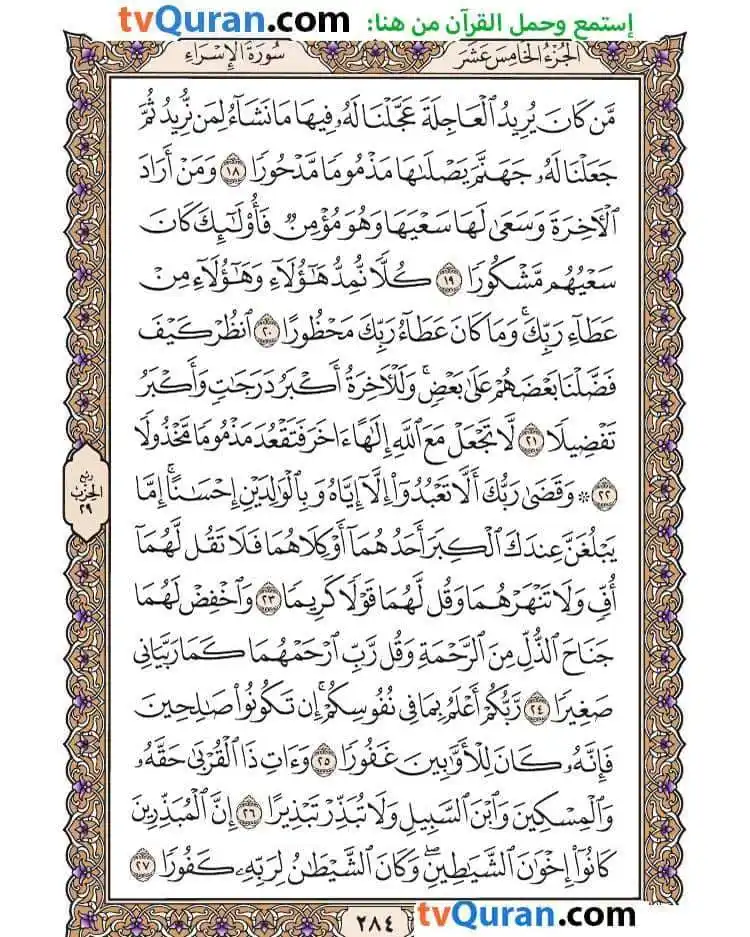 tvQuran.com إستمع وحمل القرآن من هنا:
الجُزْءُ الخَامِسَ عَشَرَ
سُورَةُ الإِسْرَاءِ
مَّن كَانَ يُرِيدُ ٱلْعَاجِلَةَ عَجَّلْنَا لَهُۥ فِيهَا مَا نَشَآءُ لِمَن نُّرِيدُ ثُمَّ
جَعَلْنَا لَهُۥ جَهَنَّمَ يَصْلَىٰهَا مَذْمُومًا مَّدْحُورًا ١٨ وَمَنْ أَرَادَ
ٱلْأٓخِرَةَ وَسَعَىٰ لَهَا سَعْيَهَا وَهُوَ مُؤْمِنٌ فَأُو۟لَـٰٓئِكَ كَانَ
سَعْيُهُم مَّشْكُورًا ١٩ كُلًّا نُّمِدُّ هَـٰٓؤُلَآءِ وَهَـٰٓؤُلَآءِ مِنْ
عَطَآءِ رَبِّكَ ۚ وَمَا كَانَ عَطَآءُ رَبِّكَ مَحْظُورًا ٢٠ ٱنظُرْ كَيْفَ
فَضَّلْنَا بَعْضَهُمْ عَلَىٰ بَعْضٍ ۚ وَلَلْأٓخِرَةُ أَكْبَرُ دَرَجَـٰتٍ وَأَكْبَرُ
تَفْضِيلًا ٢١ لَّا تَجْعَلْ مَعَ ٱللَّهِ إِلَـٰهًا ءَاخَرَ فَتَقْعُدَ مَذْمُومًا مَّخْذُولًا
٢٢ ۞ وَقَضَىٰ رَبُّكَ أَلَّا تَعْبُدُوٓا۟ إِلَّآ إِيَّاهُ وَبِٱلْوَٰلِدَيْنِ إِحْسَـٰنًا ۚ إِمَّا
يَبْلُغَنَّ عِندَكَ ٱلْكِبَرَ أَحَدُهُمَآ أَوْ كِلَاهُمَا فَلَا تَقُل لَّهُمَآ
أُفٍّ وَلَا تَنْهَرْهُمَا وَقُل لَّهُمَا قَوْلًا كَرِيمًا ٢٣ وَٱخْفِضْ لَهُمَا
جَنَاحَ ٱلذُّلِّ مِنَ ٱلرَّحْمَةِ وَقُل رَّبِّ ٱرْحَمْهُمَا كَمَا رَبَّيَانِى
صَغِيرًا ٢٤ رَّبُّكُمْ أَعْلَمُ بِمَا فِى نُفُوسِكُمْ ۚ إِن تَكُونُوا۟ صَـٰلِحِينَ
فَإِنَّهُۥ كَانَ لِلْأَوَّٰبِينَ غَفُورًا ٢٥ وَءَاتِ ذَا ٱلْقُرْبَىٰ حَقَّهُۥ
وَٱلْمِسْكِينَ وَٱبْنَ ٱلسَّبِيلِ وَلَا تُبَذِّرْ تَبْذِيرًا ٢٦ إِنَّ ٱلْمُبَذِّرِينَ
كَانُوٓا۟ إِخْوَٰنَ ٱلشَّيَـٰطِينِ ۖ وَكَانَ ٱلشَّيْطَـٰنُ لِرَبِّهِۦ كَفُورًا ٢٧
رُبْع
الحِزْب
٢٩
٢٨٤
tvQuran.com